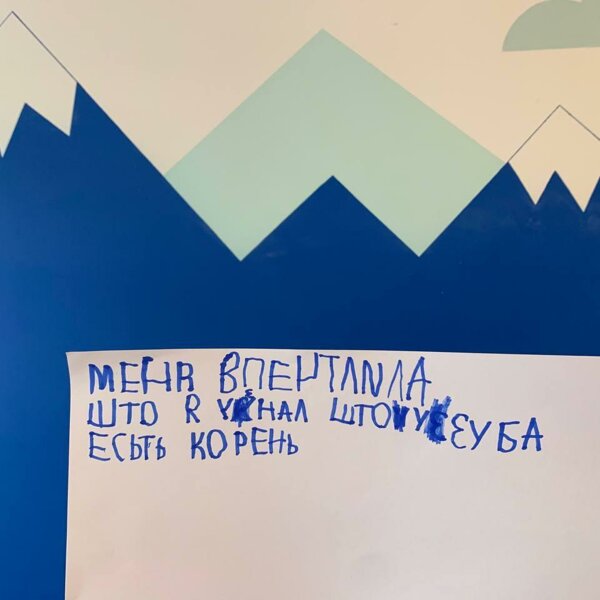 МЕНЯ ВПЕЧТЛИЛА
ШТО Я УЗНАЛ ШТО У ЗУБА
ЕСЬТЬ КОРЕНЬ